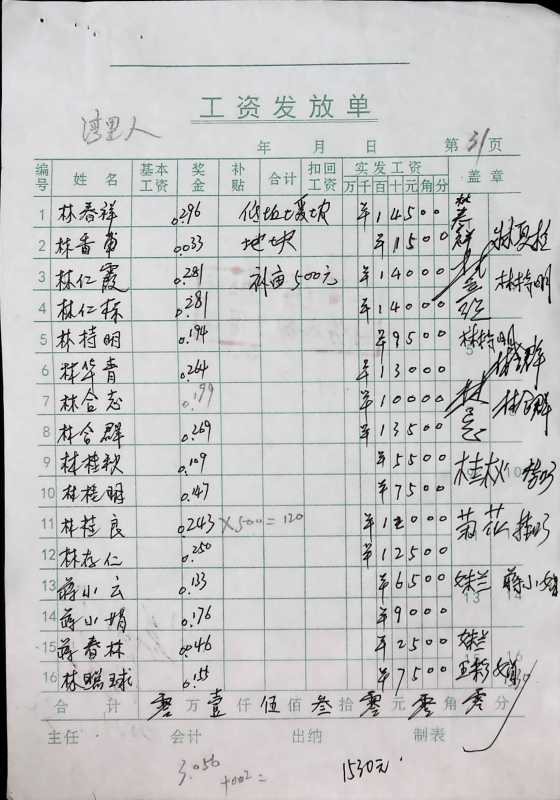 工资发放单
湾里人
年 月 日 第31页
编号 姓名 基本工资 奖金 补贴 合计 扣回工资 实发工资 万千百十元角分 盖章
1 林春祥 0.296 ¥14500
2 林香 0.033 地块 ¥1500
3 林仁霞 0.281 补亩500元 ¥14000 林特明
4 林仁栋 0.281 ¥14000
5 林特明 0.194 ¥9500 林特明
6 林华青 0.264 ¥13000
7 林合志 0.199 ¥10000
8 林合群 0.269 ¥13500 林合群
9 林桂秋 0.109 ¥5500 桂秋
10 林桂明 0.147 ¥7500
11 林桂良 0.243 ×500=120 ¥12000 菊花
12 林存仁 0.250 ¥12500
13 蒋小云 0.133 ¥6500
14 蒋小娟 0.176 ¥9000
15 蒋春林 0.046 ¥2500
16 林鹏球 0.155 ¥7500
合计 零万壹仟伍佰叁拾零元零角零分
主任 会计 出纳 制表
3.056
+002=
1530元.